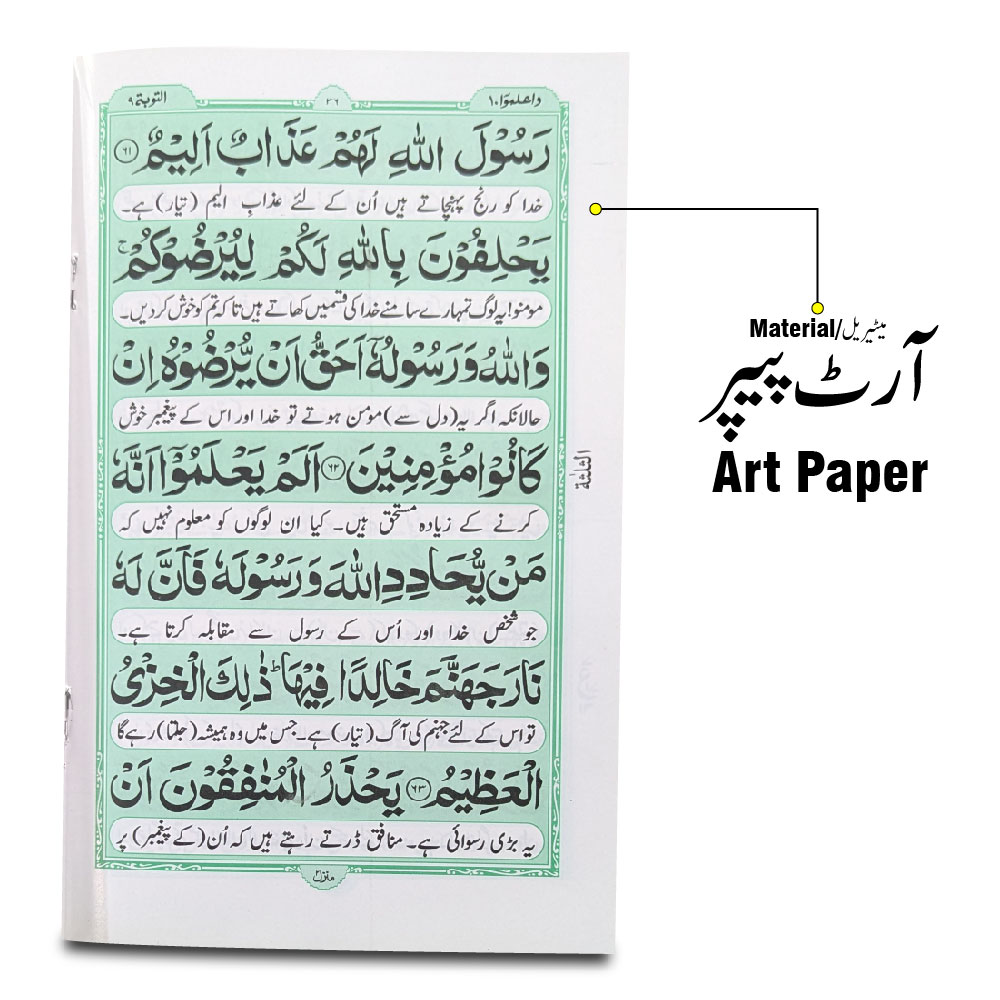 واعلموا ١٠
٣٦
التوبة ٩
رَسُوْلَ اللّٰهِ لَهُمْ عَذَابٌ اَلِيْمٌ ﴿٦١﴾
خدا کو رنج پہنچاتے ہیں اُن کے لئے عذابِ الیم (تیار) ہے۔
يَحْلِفُوْنَ بِاللّٰهِ لَكُمْ لِيُرْضُوْكُمْ ۚ
مومنو! یہ لوگ تمہارے سامنے خدا کی قسمیں کھاتے ہیں تاکہ تم کو خوش کر دیں۔
وَاللّٰهُ وَرَسُوْلُهٗۤ اَحَقُّ اَنْ يُّرْضُوْهُ اِنْ
حالانکہ اگر یہ (دل سے) مومن ہوتے تو خدا اور اس کے پیغمبر خوش
كَانُوْا مُؤْمِنِيْنَ ﴿٦٢﴾ اَلَمْ يَعْلَمُوْۤا اَنَّهٗ
کرنے کے زیادہ مستحق ہیں۔ کیا ان لوگوں کو معلوم نہیں کہ
مَنْ يُّحَادِدِ اللّٰهَ وَرَسُوْلَهٗ فَاَنَّ لَهٗ
جو شخص خدا اور اُس کے رسول سے مقابلہ کرتا ہے۔
نَارَ جَهَنَّمَ خَالِدًا فِيْهَا ؕ ذٰلِكَ الْخِزْىُ
تو اس کے لئے جہنم کی آگ (تیار) ہے۔ جس میں وہ ہمیشہ (جلتا) رہے گا
الْعَظِيْمُ ﴿٦٣﴾ يَحْذَرُ الْمُنٰفِقُوْنَ اَنْ
یہ بڑی رسوائی ہے۔ منافق ڈرتے رہتے ہیں کہ اُن (کے پیغمبر) پر
منزل ٢
الثلثة
Material/میٹیریل
آرٹ پیپر
Art Paper